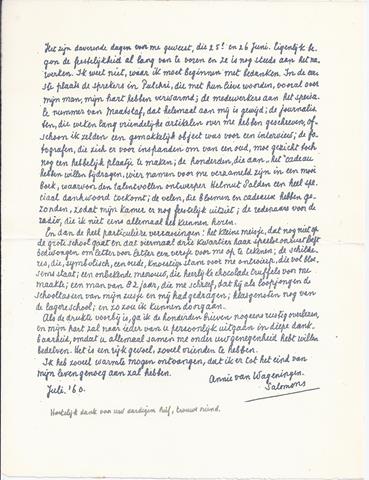 Het zijn daverende dagen voor me geweest, die 25e en 26 Juni. Eigenlijk be-
gon de feestelijkheid al lang van te voren en ze is nog steeds aan het na-
werken. Ik weet niet, waar ik moet beginnen met bedanken. In de eer-
ste plaats de sprekers in Pulchri, die met hun lieve woorden, vooral over
mijn man, mijn hart hebben verwarmd; de medewerkers aan het specia-
le nummer van Maatstaf, dat helemaal aan mij is gewijd; de journalis-
ten, die weken lang vriendelijke artikelen over me hebben geschreven, of-
schoon ik zelden een gemakkelijk object was voor een interview; de fo-
tografen, die zich er voor inspanden om van een oud, moe gezicht toch
nog een hebbelijk plaatje te maken; de honderden, die aan "het" cadeau
hebben willen bijdragen, wier namen voor me verzameld zijn in een mooi
boek, waarvoor den talentvollen ontwerper Helmut Salden een heel spe-
ciaal dankwoord toekomt; de velen, die bloemen en cadeaux hebben ge-
zonden, zodat mijn kamer er nog feestelijk uitziet; de redenaars voor de
radio, die ik niet eens allemaal heb kunnen horen.
En dan de heel particuliere verrassingen: het kleine meisje, dat nog niet op
de grote school gaat en dat viermaal drie kwartier haar speelse onrust heeft
bedwongen om letter voor letter een versje voor me op te tekenen; de schilde-
res, die, symbolisch, een oude, knoestige stam voor me ontwierp, die vol bloe-
sems staat; een onbekende mevrouw, die heerlijke chocolade truffels voor me
maakte; een man van 82 jaar, die me schreef, dat hij als loopjongen de
schooltassen van mijn zusje en mij had gedragen; klasgenoten nog van
de lagere school; en zo zou ik kunnen doorgaan.
Als de drukte voorbij is, ga ik de honderden brieven nog eens rustig overlezen,
en mijn hart zal naar ieder van u persoonlijk uitgaan in diepe dank-
baarheid, omdat u allemaal samen me onder uw genegenheid hebt willen
bedelven. Het is een rijk gevoel, zoveel vrienden te hebben.
Ik heb zoveel warmte mogen ontvangen, dat ik er tot het eind van
mijn leven genoeg aan zal hebben.
Annie van Wageningen-
Salomons
Juli '60.
Hartelijk dank voor uw aardigen brief, trouwe vriend.